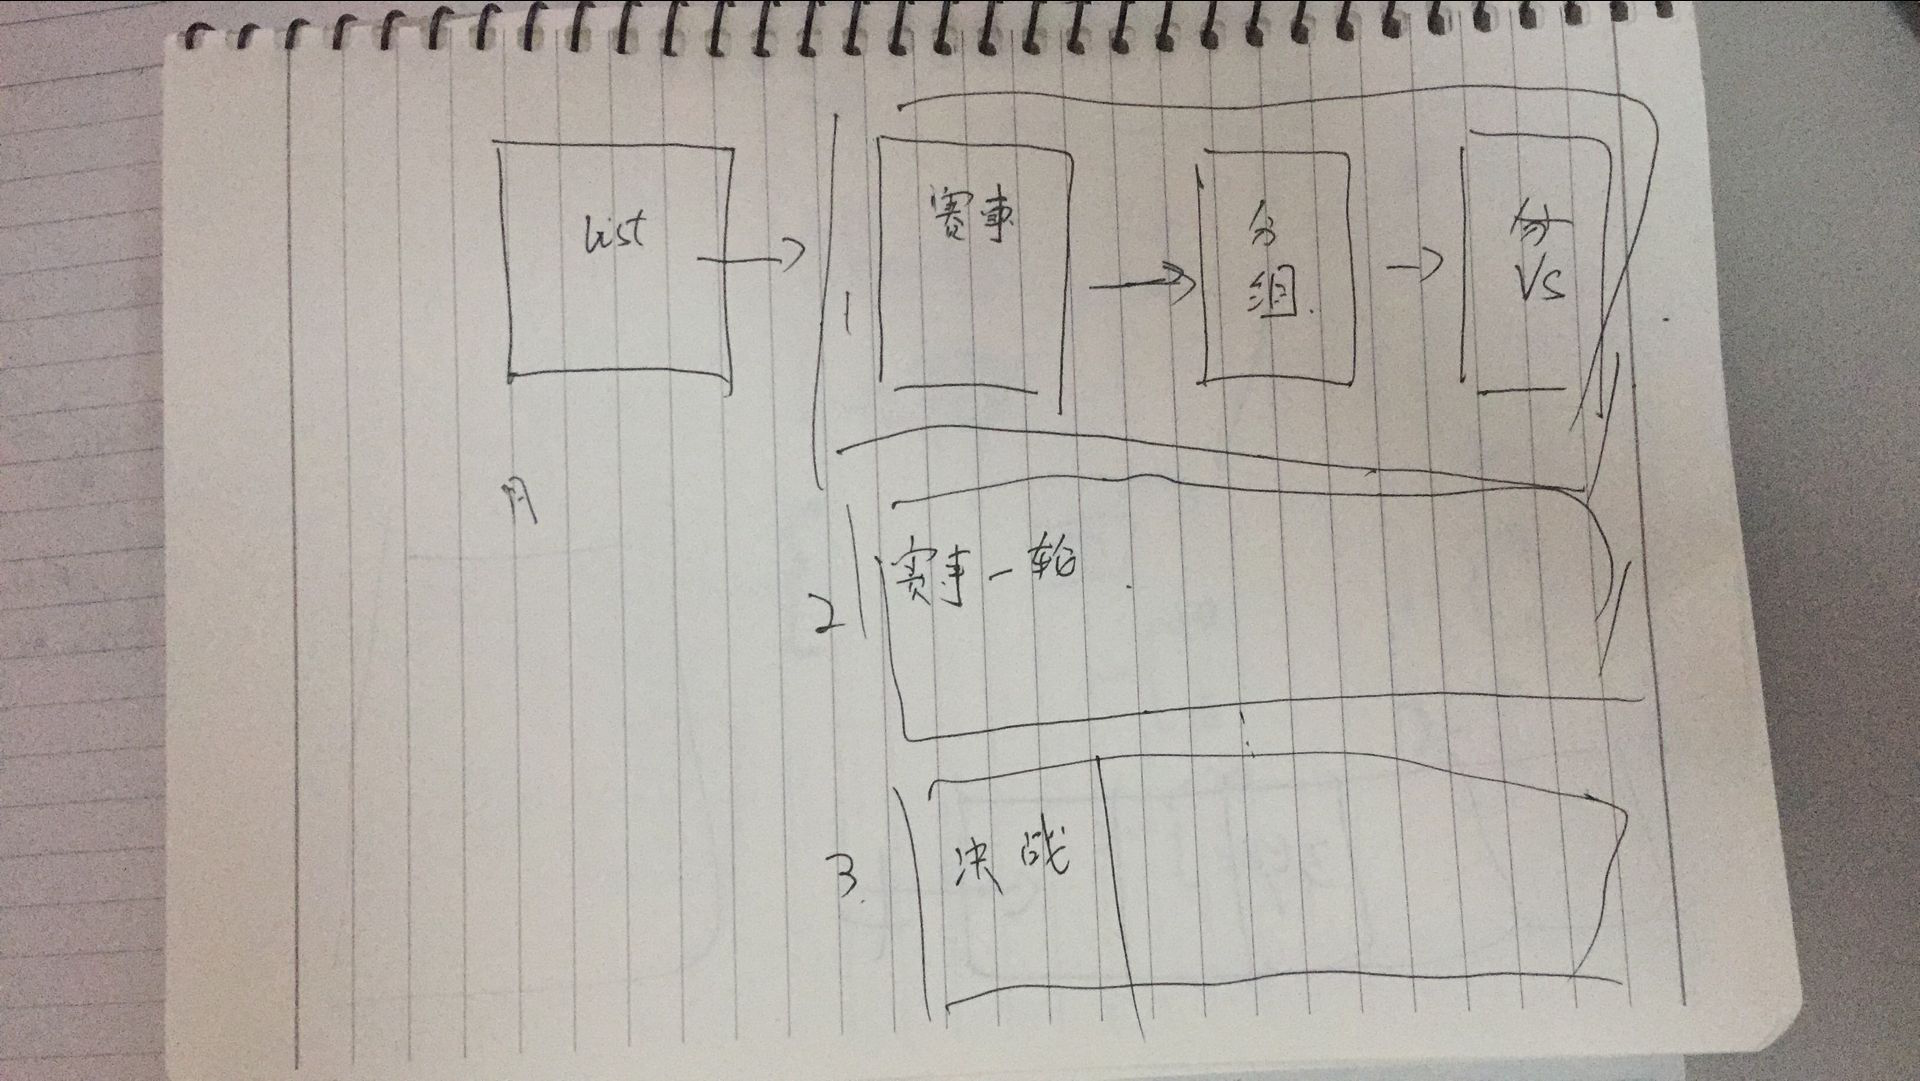 List
赛事
分
组.
VS
1
2
赛事一轮
3.
决战